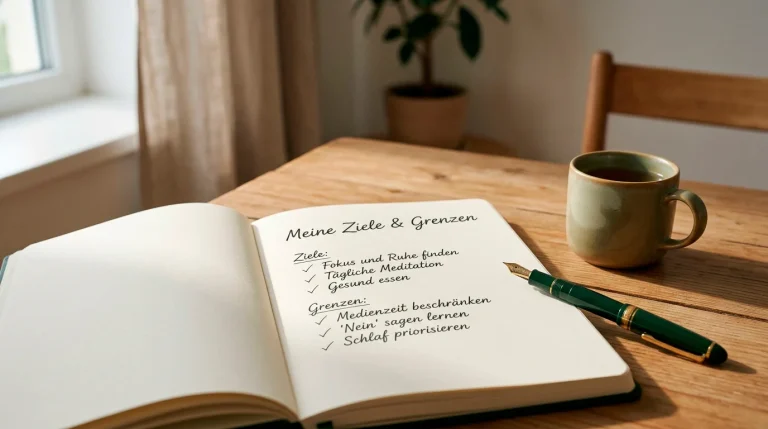 Meine Ziele & Grenzen
Ziele:
✓ Fokus und Ruhe finden
✓ Tägliche Meditation
✓ Gesund essen
Grenzen:
✓ Medienzeit beschränken
✓ 'Nein' sagen lernen
✓ Schlaf priorisieren